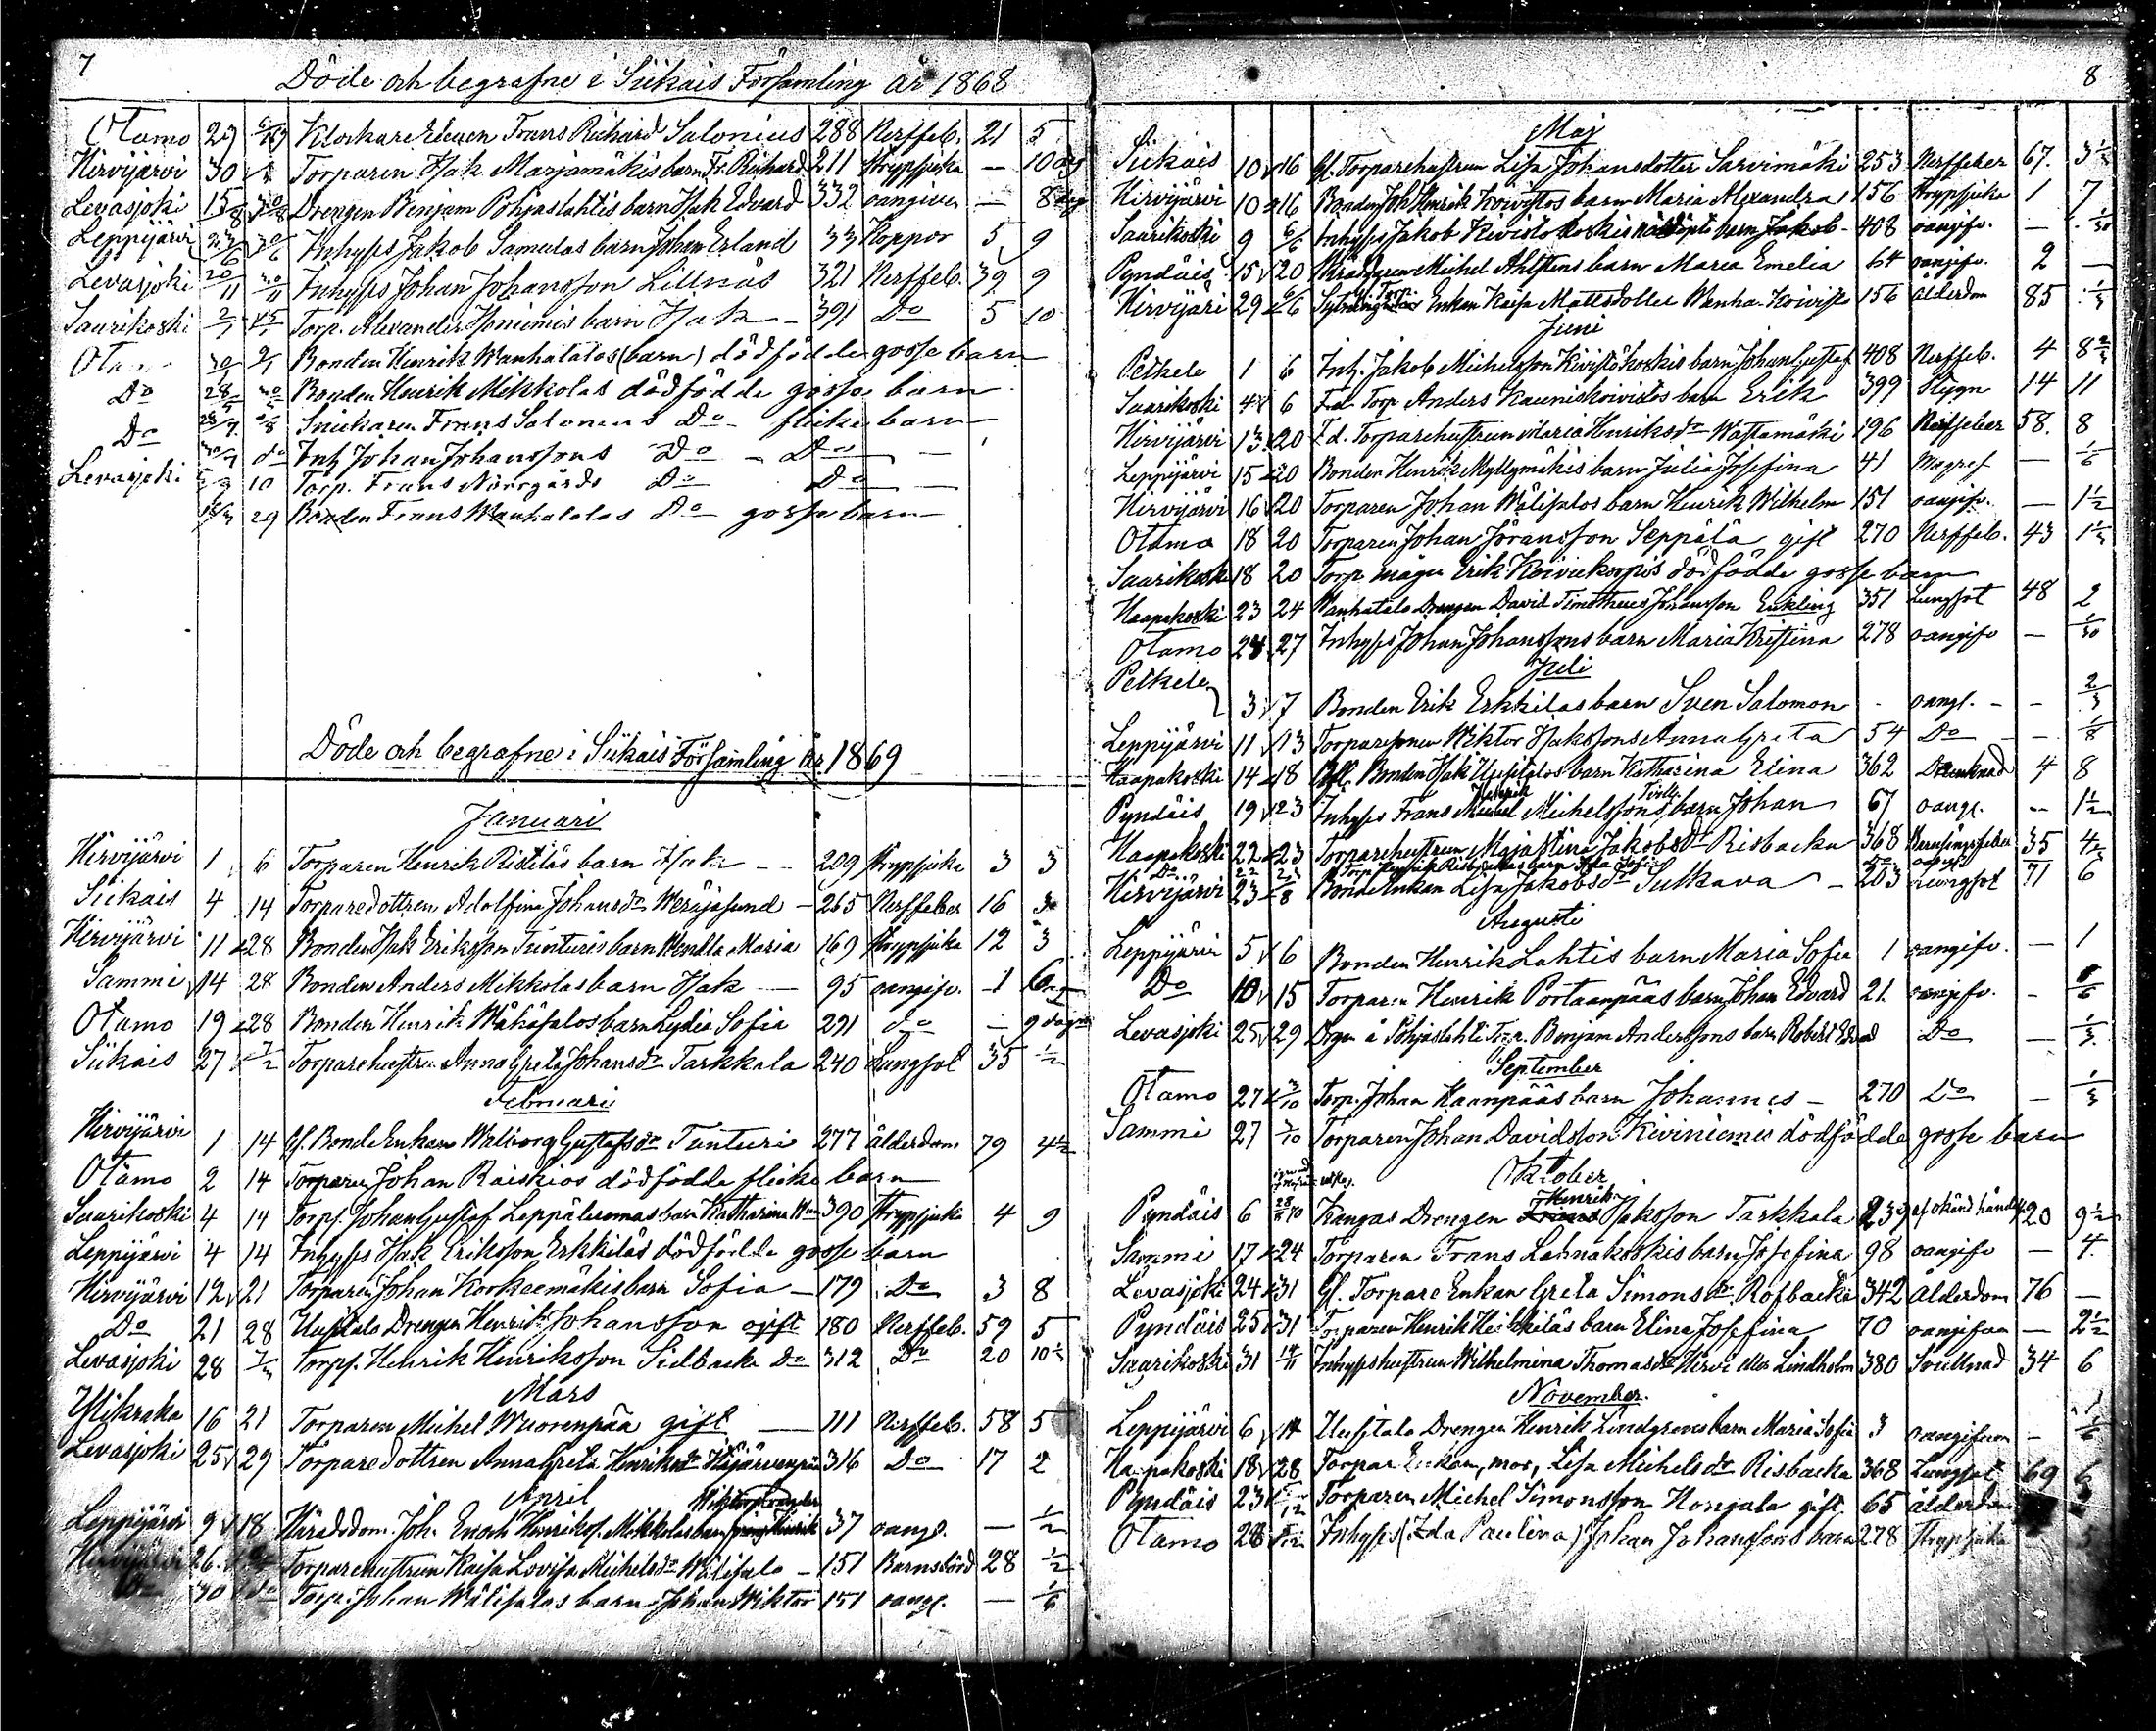 7
Döde och begrafne i Siikais Församling år 1868
Otamo 29 Klockare Eleven Frans Richard Salonius 288 Nerffeb. 21 5
Hirvijärvi 30 Torparen Isak Marjamäkis barn Fr. Richard 211 Strypsjuka — 10 dag
Levasjoki 15/8 Drengen Benjam Pohjaslahtis barn Isak Edvard 332 oangiven — 8 dag
Leppijärvi Inhyses Jakob Samulas barn Johan Erland 33 Koppor 5 9
Levasjoki 20/11 Inhyses Johan Johansson Lillnäs 321 Nerffeb. 39 9
Saarikoski Torp. Alexander Isoniemis barn Isak — 391 Do 5 10
Bonden Henrik Wanhatalos (barn) dödfödde gosse barn
Do Bonden Henrik Mikkolas dödfödde gosse barn
Do Snickaren Frans Salonens Do flicke barn
do Inh Johan Johanssons Do — Do —
Levasjoki 10 Torp. Frans Norrgårds Do Do —
29 Bonden Frans Wanhatalos Do gosse barn
Döde och begrafne i Siikais Församling år 1869
Januari
Hirvijärvi 1 6 Torparen Henrik Ristiläs barn Isak — 209 Strypsjuka 3 3
Siikais 4 14 Torparedottren Adolfina Johansdr Weräjäsund — 265 Nerffeber 16
Hirvijärvi 11 28 Bonden Isak Eriksson Tunturis barn Wendla Maria 169 Strypsjuka 12 3
Sammi 14 28 Bonden Anders Mikkolas barn Isak — 95 oangifv. 1
Otamo 19 28 Bonden Henrik Wähätalos barn Lydia Sofia 291 do — 9 dagar
Siikais 27 7/2 Torparehustrun Anna Greta Johansdr Tarkkala 240 Lungsot 35 1/2
Februari
Hirvijärvi 1 14 Gl. Bonde Enkan Walborg Gustafsdr Tunturi 277 ålderdom 79 4 1/2
Otamo 2 14 Torparen Johan Raiskios dödfödde flicke barn
Saarikoski 4 14 Torps. Johan Gustaf Leppäluomas barn Katharina 390 Strypsjuka 4 9
Leppijärvi 4 14 Inhyses Isak Eriksson Erkkiläs dödfödde gosse barn
Hirvijärvi 12 21 Torparen Johan Korkeemäkis barn Sofia — 179 Do 3 8
Do 21 28 Uusitalo Drengen Henrik Johansson ogift 180 Nerffeb. 59 5
Levasjoki 28 7/3 Torps. Henrik Henriksson Sidbacka Do 312 Do 20 10 1/2
Mars
16 21 Torparen Michel Wuorenpää gift — 111 Nerffeb. 58 5
Levasjoki 25 29 Torparedottren Anna Greta Henriksdr 316 Do 17 2
April
Leppijärvi 9 18 Häradsdom. Joh. Enoch Henrikss. Mikkolas barn 37 oang. — 1/2
26 Torparehustrun Kaisa Lovisa Michelsdr Wälisalo — 151 Barnsbörd 28 1/2
Do 30 do Torp. Johan Wälisalos barn Johan Wiktor 151 oang. — 1/6
8
Maj
Siikais 10 16 Gl. Torparehustrun Lisa Johansdotter Sarvimäki 253 Nerffeber 67. 3 1/2
Hirvijärvi 10 16 Bonden Joh Henrik Koivistos barn Maria Alexandra 156 Strypsjuka 1 7
Saarikoski 9 6/6 Inhyses Jakob Kivistökoskis nöddöpte barn Jakob 408 oangifv. — 1/30
Pyndäis 15 20 Michel Ahlstens barn Maria Emelia 64 oangifv. 2 —
Hirvijäri 29 6/6 Enkan Kaisa Mattsdotter Wanha-Koivisto 156 ålderdom 85 1/3
Juni
Petkele 1 6 Inh. Jakob Michelsson Kivistökoskis barn Johan Gustaf 408 Nerffeb. 4 8 2/3
Saarikoski 4 6 F.d. Torp Anders Kauniskoivistos barn Erik 399 Stygn 14 11
Hirvijärvi 13 20 F.d. Torparehustrun Maria Henriksdr Wattamäki 196 Nerffeber 58. 8
Leppijärvi 15 20 Bonden Henrik Myllymäkis barn Julia Josefina 41 Magref — 1/6
Hirvijärvi 16 20 Torparen Johan Wälisalos barn Henrik Wilhelm 151 oangifv. — 1 1/2
Otamo 18 20 Torparen Johan Jöransson Seppälä gift 270 Nerffeb. 43 1 1/2
Saarikoski 18 20 Torp. mågen Erik Koivukorpis dödfödde gosse barn
Haapakoski 23 24 Wanhatalo Drengen David Timotheus Johansson Enkling 351 Lungsot 48 2
Otamo 24 27 Inhyses Johan Johanssons barn Maria Kristina 278 oangifv — 1/30
Juli
Petkele 3 7 Bonden Erik Erkkilas barn Sven Salomon - oangl. - - 2/3
Leppijärvi 11 13 Torparesonen Wiktor Isakssons Anna Greta 54 Do — 1/8
Haapakoski 14 18 Bonden Isak Uusitalos barn Katharina Elina 362 Drunknad 4 8
Pyndäis 19 23 Inhyses Frans Henrik Michelssons Tvill. barn Johan 67 oangl. -- 1 1/2
Haapakoski 22 23 Torparehustrun Maja Stina Jakobsdr Risbacka 368 Barnsängsfeber 35
Do
Hirvijärvi 23 Bonde Enkan Lisa Jakobsdr Sulkava — 203 Lungsot 71 6
Augusti
Leppijärvi 5 6 Bonden Henrik Lahtis barn Maria Sofia 1 oangifv. — 1
Do 10 15 Torparen Henrik Portaanpääs barn Johan Edvard 21. oangifv. -
Levasjoki 25 29 Drgn å Pohjaslahti Torp. Benjam Anderssons barn Robert Edvard Do — 1/3
September
Otamo 27 3/10 Torp. Johan Haanpääs barn Johannes — 270 Do — 1/3
Sammi 27 3/10 Torparen Johan Davidsson Kiviniemis dödfödde gosse barn
Oktober
Pyndäis 6 Kangas Drengen Henrik Isaksson Tarkkala 239 af okänd händelse 20 9 1/2
Sammi 17 24 Torparen Frans Lahnakoskis barn Josefina 98 oangifv — 4.
Levasjoki 24 31 Gl. Torpare Enkan Greta Simonsdr Rofbacka 342 Ålderdom 76 —
Pyndäis 25 31 Torparen Henrik Heikkiläs barn Elina Josefina 70 oangifven — 2 1/2
Saarikoski 31 14/11 Inhyseshustrun Wilhelmina Thomasdr Hirvi eller Lindholm 380 Svullnad 34 6
November
Leppijärvi 6 14 Uusitalo Drengen Henrik Lindgrens barn Maria Sofia 3 oangifven - 1/6
Haapakoski 18 28 Torpare Enkan, mor, Lisa Michelsdr Risbacka 368 Lungsot 69 6
Pyndäis 23 Torparen Michel Simonsson Kongala gift 65 ålderdom
Otamo 28 Inhyses (Ida Paulina) Johan Johanssons barn 278 Strypsjuka